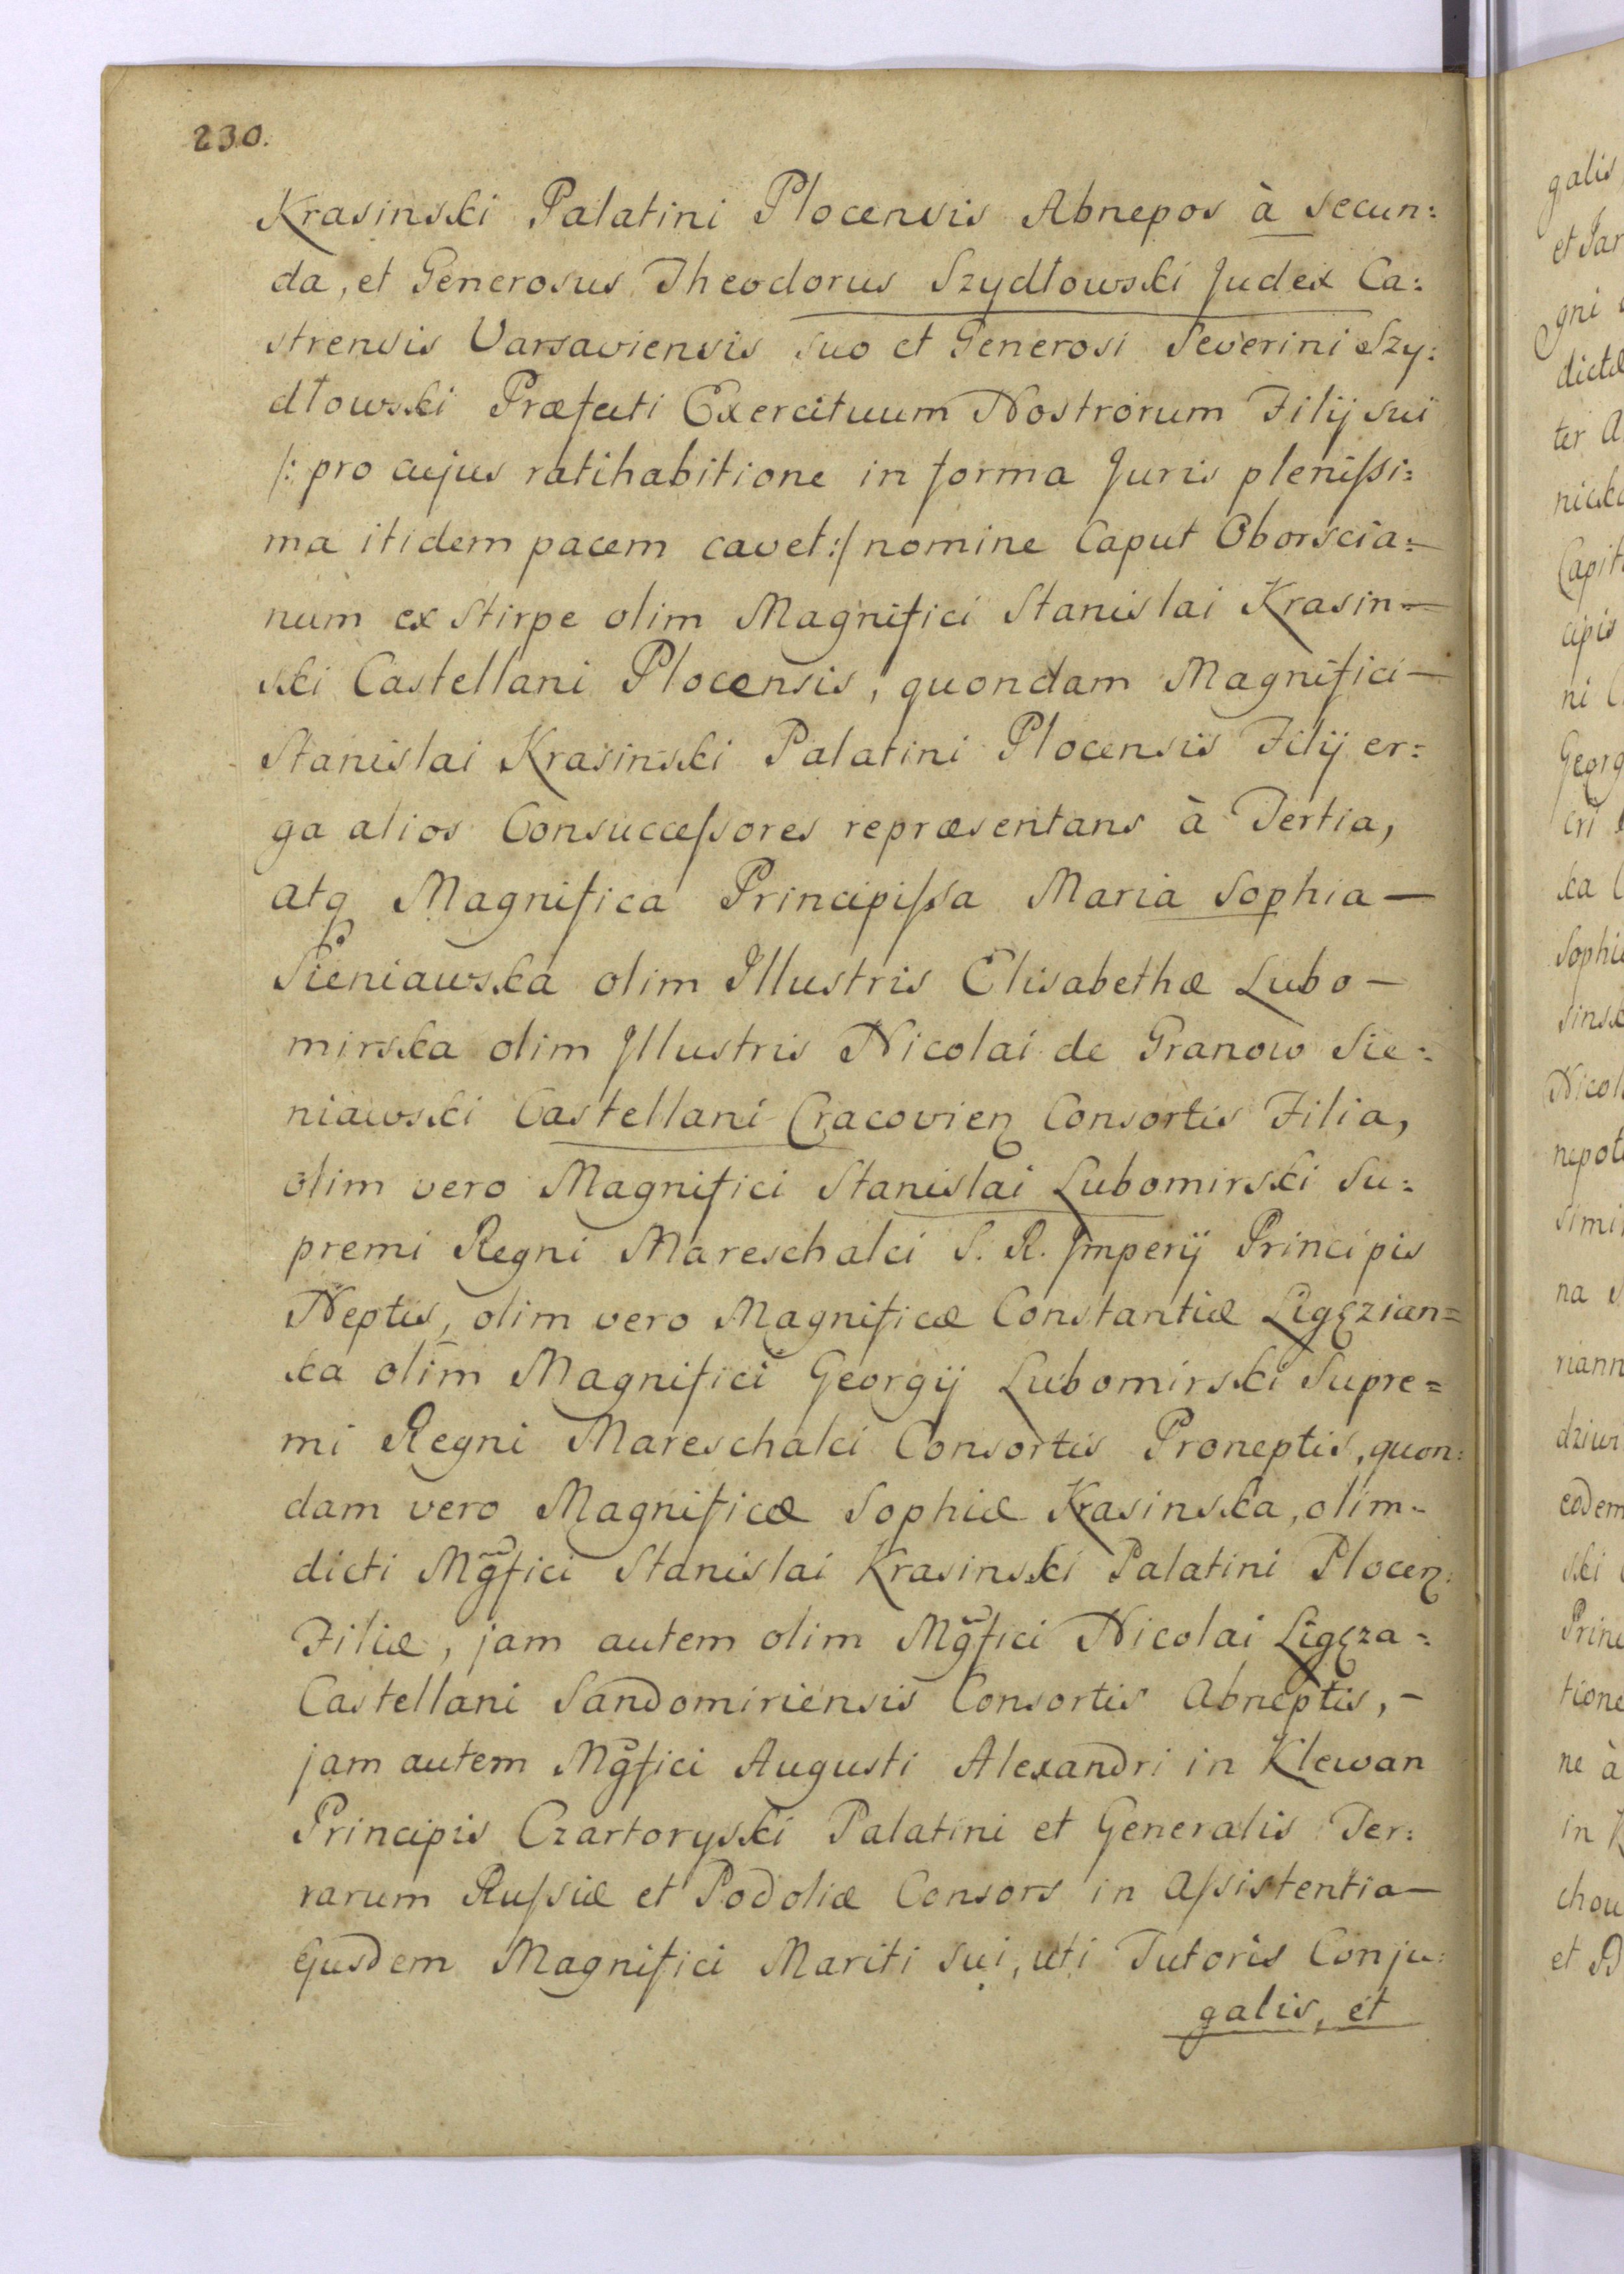 230.
Krasinski Palatini Plocensis Abnepos à secun:
da, et Generosus Theodorus Szydłowski Judex Ca:
strensis Varsaviensis suo et Generosi Severini Szy:
dłowski Præfecti Exercituum Nostrorum Filij sui
/: pro cujus ratihabitione in forma Juris plenissi:
ma itidem pacem cavet :/ nomine Caput Oborscia=
num ex Stirpe olim Magnifici Stanislai Krasin=
ski Castellani Plocensis, quondam Magnifici —
Stanislai Krasinski Palatini Plocensis Filij er:
ga alios Consuccessores repræsentans à Tertia,
atq Magnifica Principissa Maria Sophia —
Sieniawska olim Illustris Elisabethæ Lubo —
mirska olim Illustris Nicolai de Granow Sie:
niawski Castellani Cracovien Consortis Filia,
olim vero Magnifici Stanislai Lubomirski Su:
premi Regni Mareschalci S. R. Imperij Principis
Neptis, olim vero Magnificæ Constantiæ Ligęzian=
ka olim Magnifici Georgij Lubomirski Supre=
mi Regni Mareschalci Consortis Proneptis, quon:
dam vero Magnificæ Sophiæ Krasinska, olim -
dicti Mg̃fici Stanislai Krasinski Palatini Plocen:
Filiæ, jam autem olim Mg̃fici Nicolai Ligęza =
Castellani Sandomiriensis Consortis Abneptis, -
jam autem Mg̃fici Augusti Alexandri in Klewan
Principis Czartoryski Palatini et Generalis Ter:
rarum Russiæ et Podoliæ Consors in Assistentia —
Ejusdem Magnifici Mariti sui, uti Tutoris Conju:
galis, et
galis
et Jar
gni
dictæ
ter A
Capit
cipis
ni C
Georg
Sophi
Nicol
nepot
simi
na
riann
eodem
ski
Princ
tione
ne à
in K
chou
et B